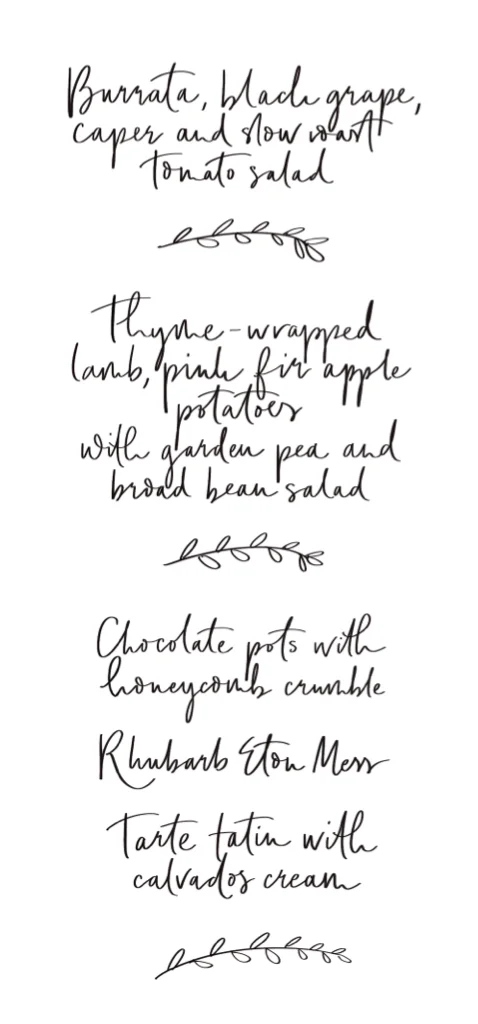 Burrata, black grape,
caper and slow roast
tomato salad
Thyme-wrapped
lamb, pink fir apple
potatoes
with garden pea and
broad bean salad
Chocolate pots with
honeycomb crumble
Rhubarb Eton Mess
Tarte tatin with
calvados cream